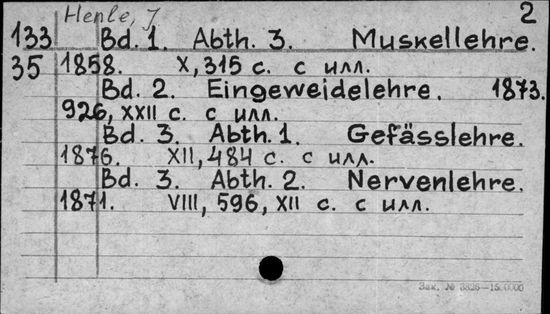 Henle, J 2
133 Bd. 1. Abth. 3. Muskellehre.
35 1858. X, 315 с. с илл.
Bd. 2. Eingeweidelehre. 1873.
926, XXII с. с илл.
Bd. 3. Abth. 1. Gefässlehre.
1876. XII, 484 с. с илл.
Bd. 3. Abth. 2. Nervenlehre.
1871. VIII, 596, XII с. с илл.
Зак. № 3826—15.0000